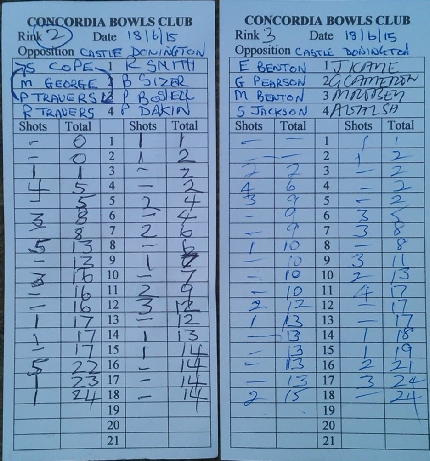 CONCORDIA BOWLS CLUB
Rink 2 Date 18/6/15
Opposition CASTLE DONINGTON
S COPE 1 R SMITH
M GEORGE 2 B SIZER
P TRAVERS 3 P BOSTELL
R TRAVERS 4 P DAKIN
Shots Total Shots Total
- 0 1 1 1
- 0 2 1 2
1 1 3 - 2
4 5 4 - 2
- 5 5 2 4
3 8 6 - 4
- 8 7 2 6
5 13 8 - 6
- 13 9 1 7
3 16 10 - 7
- 16 11 2 9
- 16 12 3 12
1 17 13 - 12
- 17 14 1 13
- 17 15 1 14
5 22 16 - 14
1 23 17 - 14
1 24 18 - 14
19
20
21
CONCORDIA BOWLS CLUB
Rink 3 Date 18/6/15
Opposition CASTLE DONINGTON
E BENTON 1 J KAME
G PEARSON 2 G CAMERON
M BENTON 3
S JACKSON 4 A WALSH
Shots Total Shots Total
- - 1 1 1
- - 2 1 2
2 2 3 - 2
4 6 4 - 2
3 9 5 - 2
- 9 6 3 5
- 9 7 3 8
1 10 8 - 8
- 10 9 3 11
- 10 10 2 13
- 10 11 4 17
2 12 12 - 17
1 13 13 - 17
- 13 14 1 18
- 13 15 1 19
- 13 16 2 21
- 13 17 3 24
2 15 18 - 24
19
20
21